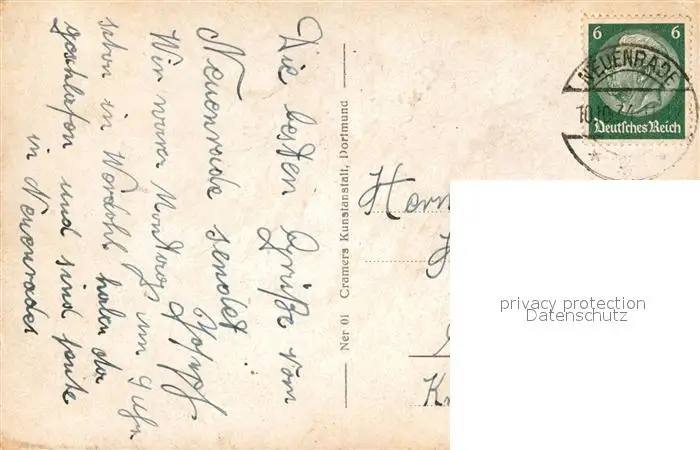 Die besten Grüße vom
Neuenrade sendet
Wir waren Montags um 9 Uhr
schon in Werdohl haben da
geschlafen und sind heute
in Neuenrade
Ner 01 Cramers Kunstanstalt, Dortmund
6 6
Deutsches Reich
NEUENRADE
privacy protection
Datenschutz